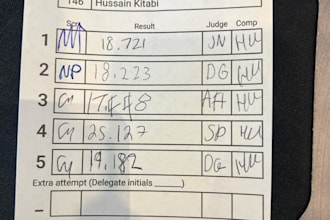 146 Hussain Kitabi
Result Judge Comp
1 18.721 JN HU
2 NP 18.223 DG HU
3 Cy AH HU
4 Cy 25.127 SP HU
5 Cy 19.182 DG HU
Extra attempt (Delegate initials ______)